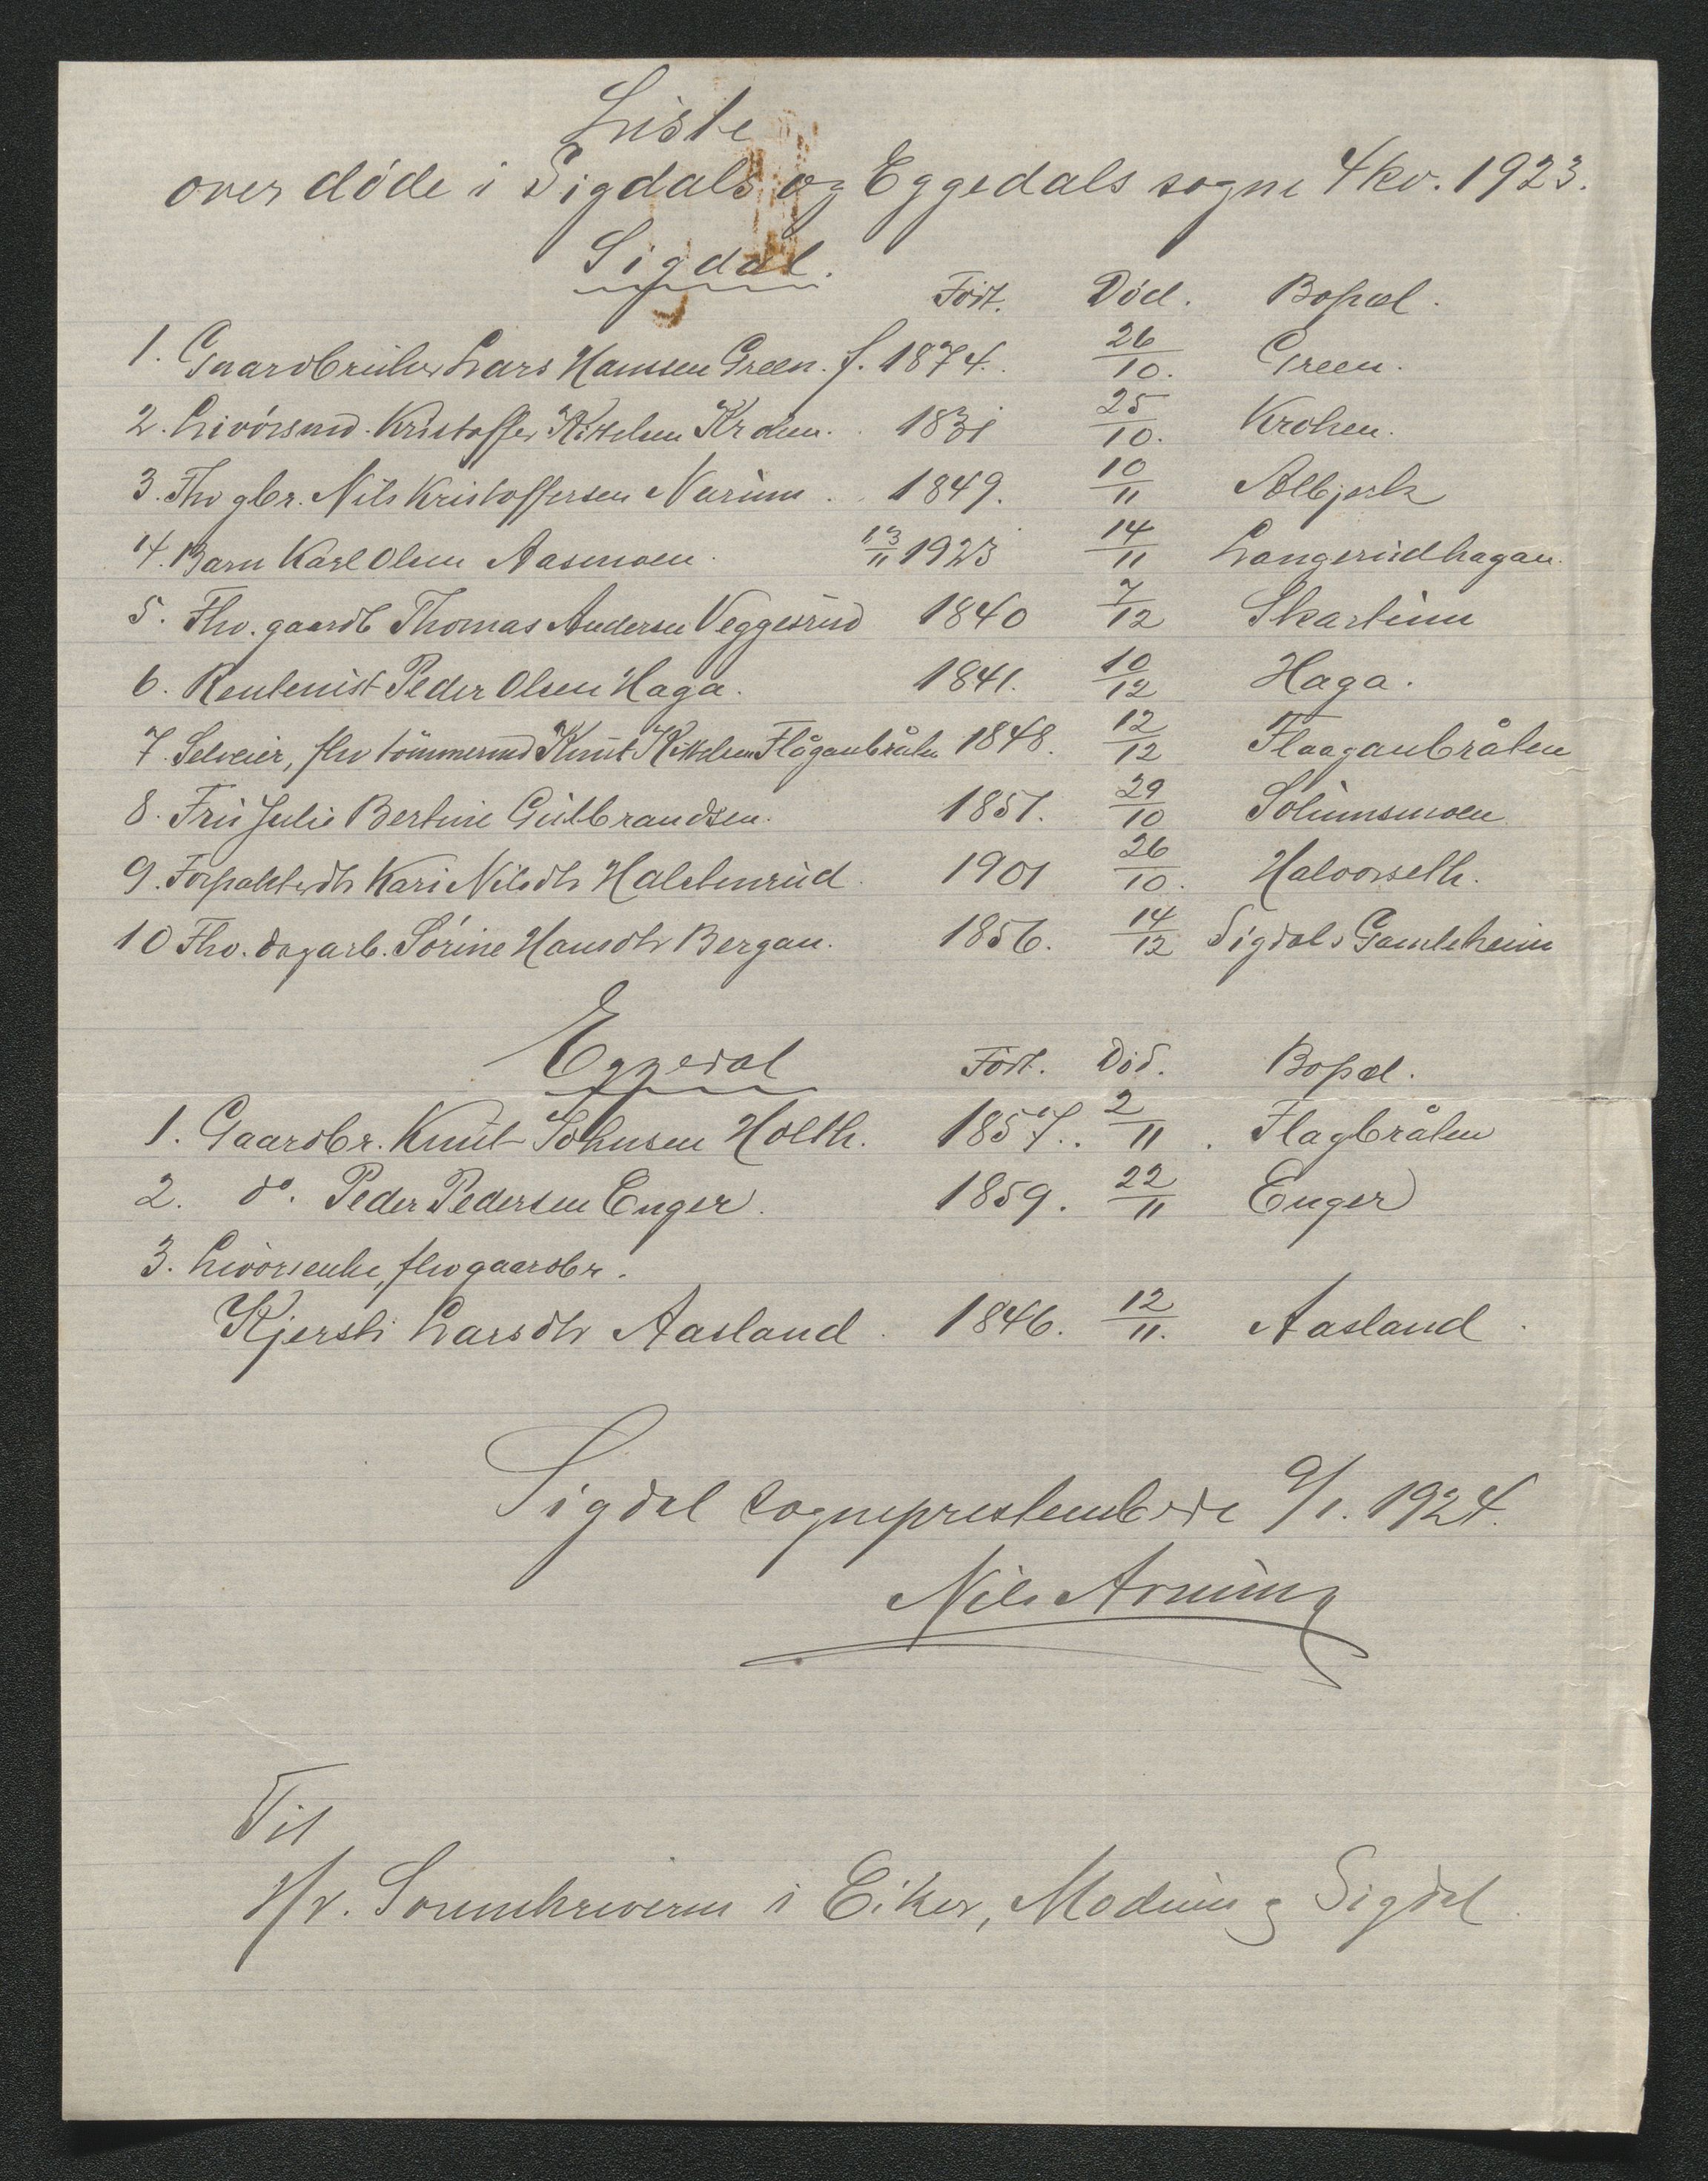 Liste
over døde i Sigdals og Eggedals sogne 4 kv. 1923.
Sigdal.
Født. Død. Bopæl.
1. Gaardbruker Lars Hansen Green. f. 1874. 26/10. Green.
2. Livörsmd. Kristoffer Kittelsen Kroken. 1831 25/10. Kroken.
3. Fhv gbr. Nils Kristoffersen Narum. 1849. 10/11 Albjerk
4. Barn Karl Olsen Aasmoen. 13/11 1923 14/11 Langerudhagan.
5. Fhv. gaardb Thomas Andersen Veggesrud 1840 7/12 Skartum
6. Rentenist Peder Olsen Haga. 1841. 10/12 Haga.
7. Selveier, fhv tømmermd Knut Kittelsen Flåganbråten 1848. 12/12 Flaaganbråten
8. Fru Julie Bertine Gulbrandsen. 1851. 29/10 Solumsmoen
9. Forpakterdtr Kari Nilsdtr Halstenrud. 1901 26/10. Halvorseth.
10 Fhv. dagarb. Sörine Hansdtr Bergan. 1856. 14/12 Sigdals Gamleheim
Eggedal Født. Død. Bopæl.
1. Gaardbr. Knut Johnsen Holth. 1857. 2/11. Flagbråten
2. do. Peder Pedersen Enger. 1859. 22/11 Enger
3. Livörsenke, fhv gaardbr.
Kjersti Larsdtr Aasland. 1846. 12/11. Aasland.
Sigdal sogneprestembede 9/1. 1924.
Nils Arning
Til
Hr. Sorenskriveren i Eiker, Modum og Sigdal.